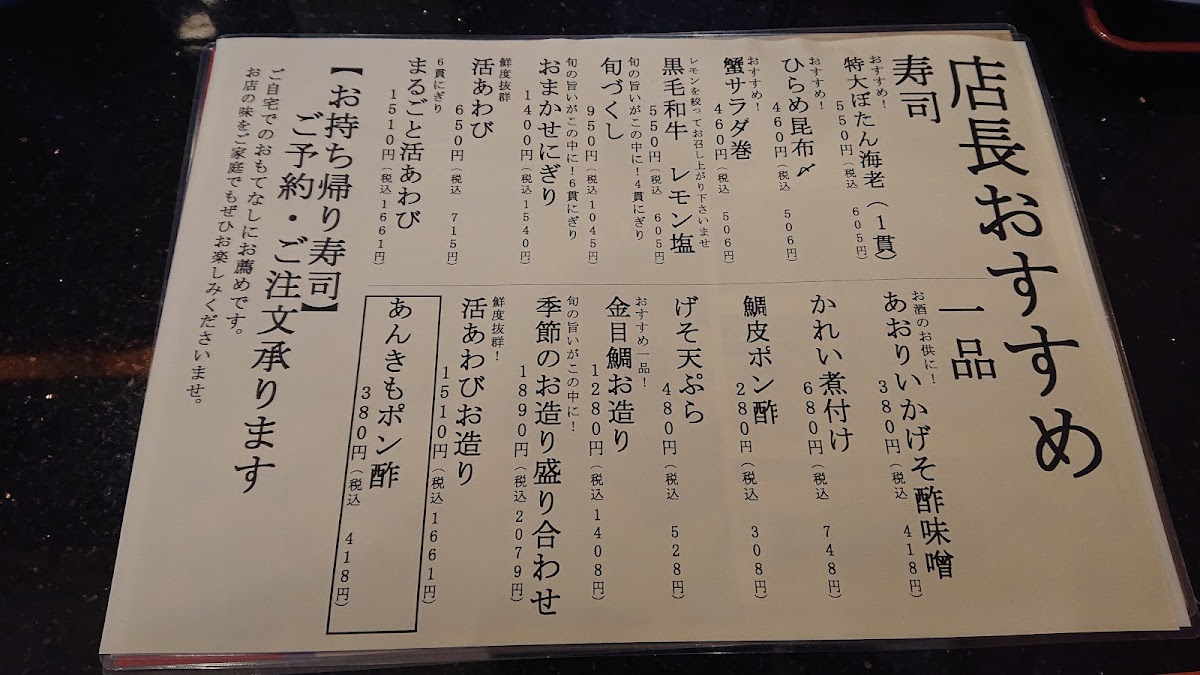 店長おすすめ
寿司
おすすめ!
特大ぼたん海老(1貫)
550円(税込 605円)
おすすめ!
ひらめ昆布〆
460円(税込 506円)
おすすめ!
蟹サラダ巻
460円(税込 506円)
レモンを絞ってお召し上がり下さいませ
黒毛和牛 レモン塩
550円(税込 605円)
旬の旨いがこの中に!4貫にぎり
旬づくし
950円(税込1045円)
旬の旨いがこの中に!6貫にぎり
おまかせにぎり
1400円(税込1540円)
鮮度抜群
活あわび
650円(税込 715円)
6貫にぎり
まるごと活あわび
1510円(税込1661円)
一品
お酒のお供に!
あおりいかげそ酢味噌
380円(税込 418円)
かれい煮付け
680円(税込 748円)
鯛皮ポン酢
280円(税込 308円)
げそ天ぷら
480円(税込 528円)
おすすめ一品!
金目鯛お造り
1280円(税込1408円)
旬の旨いがこの中に!
季節のお造り盛り合わせ
1890円(税込2079円)
鮮度抜群!
活あわびお造り
1510円(税込1661円)
あんきもポン酢
380円(税込 418円)
【お持ち帰り寿司】
ご予約・ご注文承ります
ご自宅でのおもてなしにお薦めです。
お店の味をご家庭でもぜひお楽しみくださいませ。